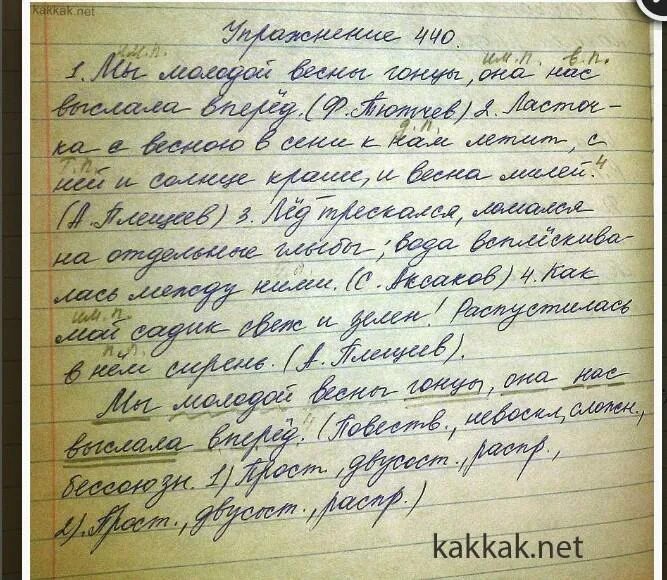 kakkak.net
Упражнение 440.
им.п. им.п. в.п.
1. Мы молодой весны гонцы, она нас
выслала вперёд. (Ф. Тютчев) 2. Ласточ-
д.п.
ка с весною в сени к нам летит, с
т.п. 4
ней и солнце краше, и весна милей.
(А. Плещеев) 3. Лёд трескался, ломался
на отдельные глыбы; вода всплёскива-
лась между ними. (С. Аксаков) 4. Как
им.п.
мой садик свеж и зелен! Распустилась
п.п.
в нём сирень. (А. Плещеев).
Мы молодой весны гонцы, она нас
4
выслала вперёд. (Повеств., невоскл, сложн.,
бессоюзн. 1) Прост., двусост., распр.,
2). Прост., двусост., распр.)
kakkak.net